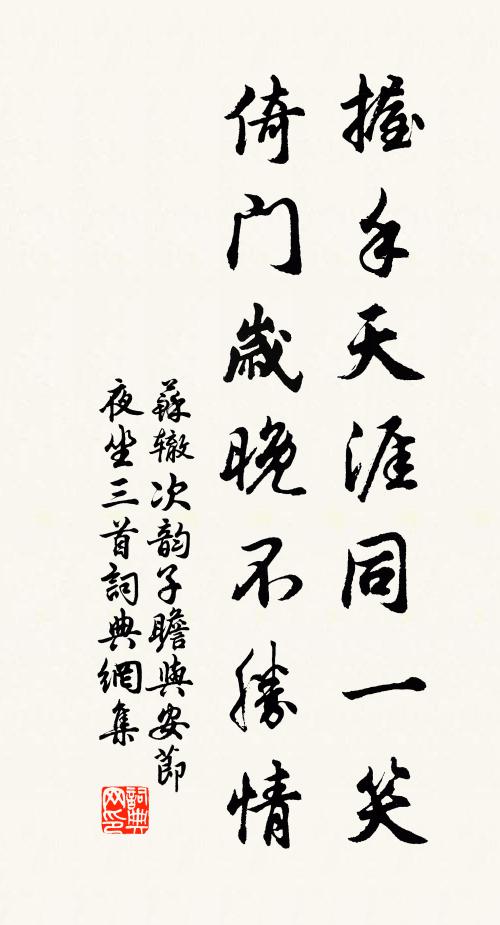 握手天涯同一笑
倚门歲晚不勝情
蘇辙次韵子瞻與安節
夜坐三首詞典網集
詞典
网印